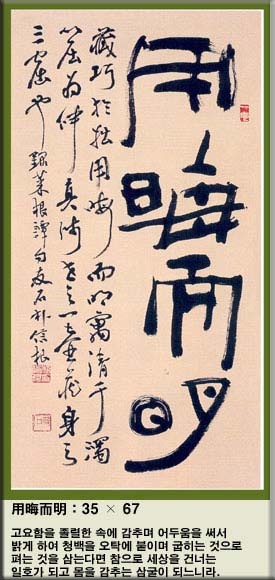 用晦而明
藏巧於拙用晦而明寓清于濁
以屈为伸真涉世之一壺藏身之
三窟也 錄菜根譚句友石朴信根
用晦而明 : 35 × 67
고요함을 졸렬한 속에 감추며 어두움을 써서
밝게 하여 청백을 오탁에 붙이며 굽히는 것으로
펴는 것을 삼는다면 참으로 세상을 건너는
일호가 되고 몸을 감추는 삼굴이 되느니라.